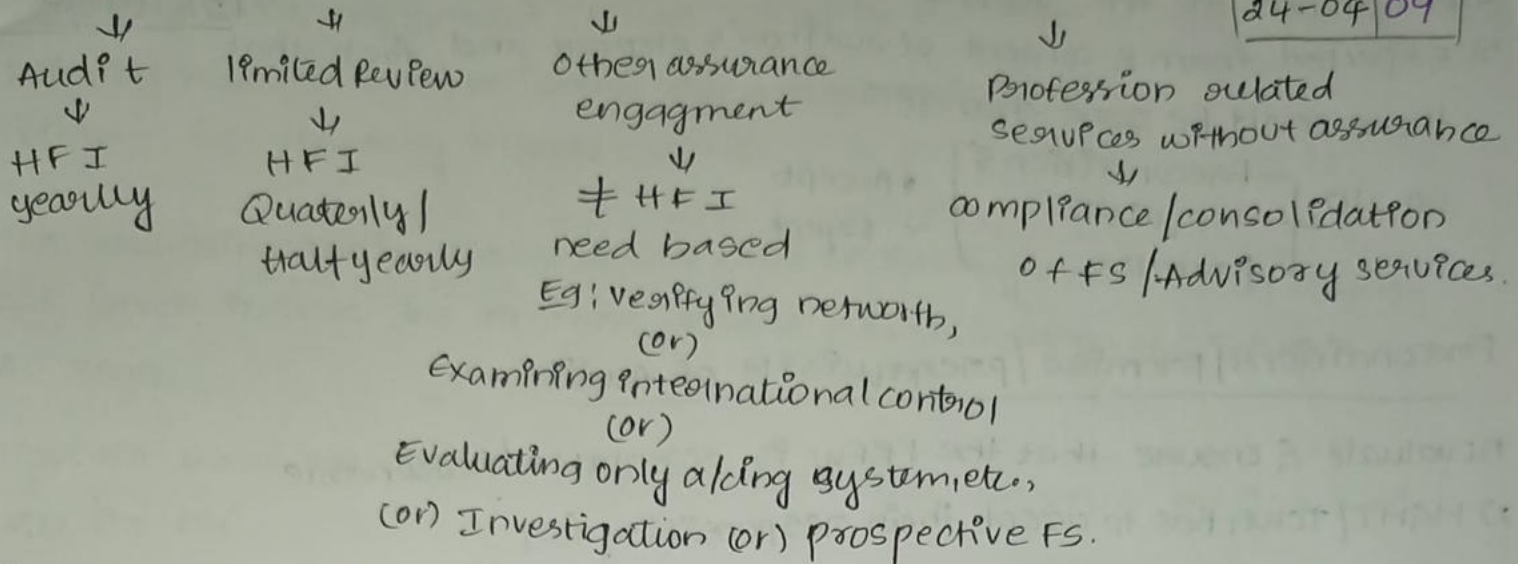 24-04 09
Audit
HFI
yearlly
limited Review
HFI
Quaterly/
Halfyearly
Other assurance
engagment
≠ HFI
need based
Eg: verifying networth,
(or)
Examining international control
(or)
Evaluating only a/cing system, etc.,
(or) Investigation (or) prospective FS.
Profession related
services without assurance
compliance/consolidation
of FS/Advisory services.